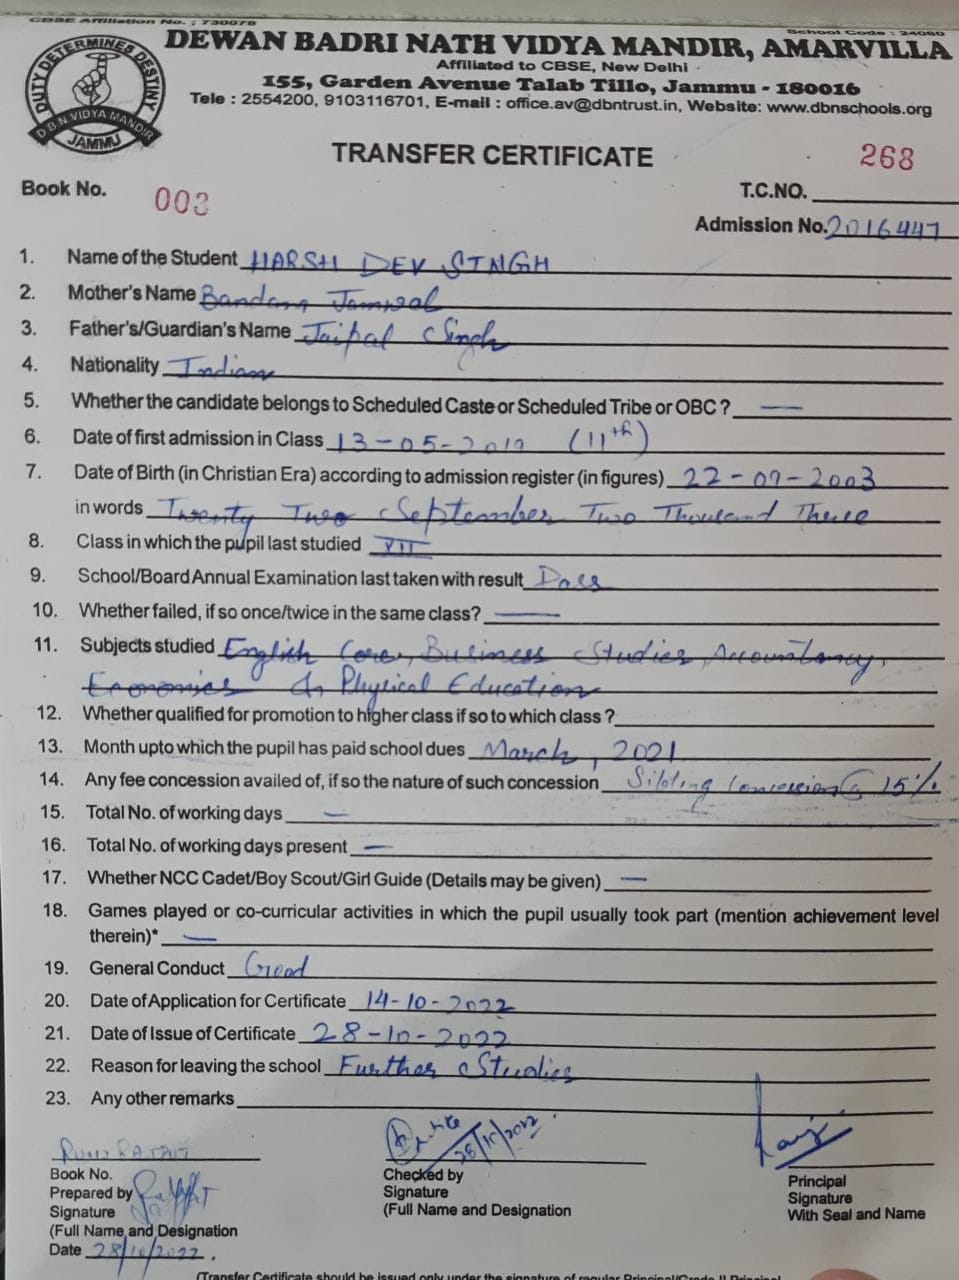 CBSE Affiliation No. : 730078
School Code : 24060
DUTY DETERMINES DESTINY
D.B.N. VIDYA MANDIR
JAMMU
DEWAN BADRI NATH VIDYA MANDIR, AMARVILLA
Affiliated to CBSE, New Delhi
155, Garden Avenue Talab Tillo, Jammu - 180016
Tele : 2554200, 9103116701, E-mail : office.av@dbntrust.in, Website: www.dbnschools.org
TRANSFER CERTIFICATE 268
Book No. 003 T.C.NO.
Admission No. 2016447
1. Name of the Student HARSH DEV SINGH
2. Mother's Name Bandana Jamwal
3. Father's/Guardian's Name Jaipal Singh
4. Nationality Indian
5. Whether the candidate belongs to Scheduled Caste or Scheduled Tribe or OBC ? —
6. Date of first admission in Class 13-05-2019 (11th)
7. Date of Birth (in Christian Era) according to admission register (in figures) 22-09-2003
in words Twenty Two September Two Thousand Three
8. Class in which the pupil last studied XII
9. School/Board Annual Examination last taken with result Pass
10. Whether failed, if so once/twice in the same class? —
11. Subjects studied English Core, Business Studies, Accountancy,
Economics & Physical Education
12. Whether qualified for promotion to higher class if so to which class ?
13. Month upto which the pupil has paid school dues March, 2021
14. Any fee concession availed of, if so the nature of such concession Sibling Concession @ 15%
15. Total No. of working days —
16. Total No. of working days present —
17. Whether NCC Cadet/Boy Scout/Girl Guide (Details may be given) —
18. Games played or co-curricular activities in which the pupil usually took part (mention achievement level
therein)* —
19. General Conduct Good
20. Date of Application for Certificate 14-10-2022
21. Date of Issue of Certificate 28-10-2022
22. Reason for leaving the school Further Studies
23. Any other remarks
28/10/2022
Book No. Checked by Principal
Prepared by Signature Signature
Signature (Full Name and Designation With Seal and Name
(Full Name and Designation
Date 28/10/2022.
(Transfer Certificate should be issued only under the signature of regular Principal/Grade II Principal